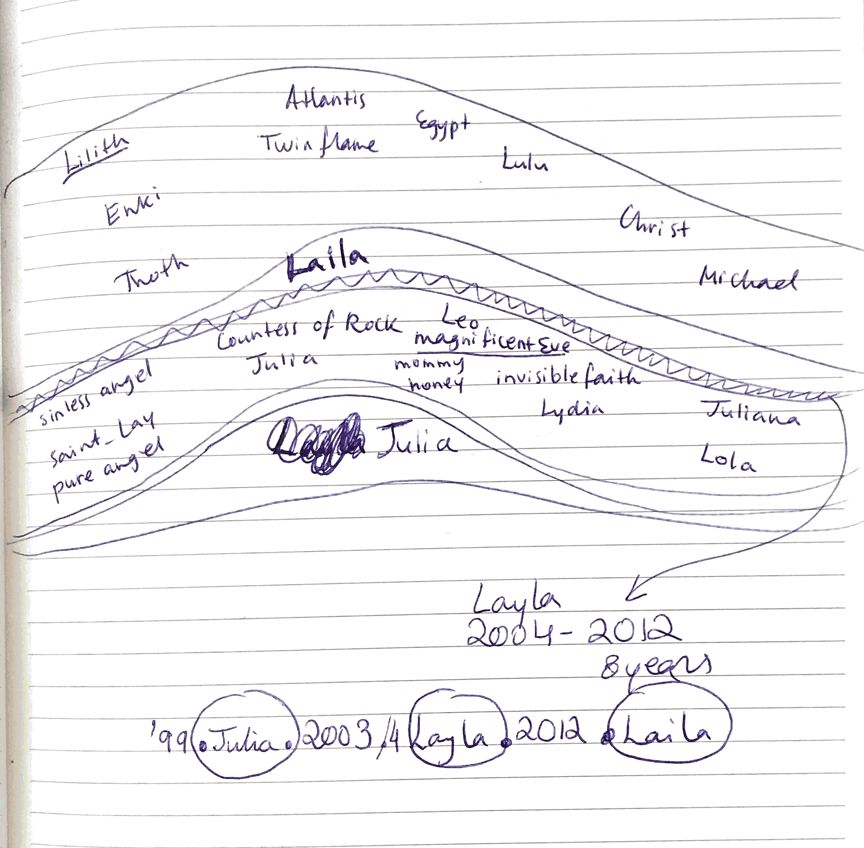 Atlantis
Egypt
Lilith
Twin flame
Lulu
Enki
Christ
Thoth
Laila
Michael
Countess of Rock
Leo
magnificent Eve
Julia
mommy
honey
invisible faith
sinless angel
Lydia
Juliana
saint_Lay
pure angel
Julia
Lola
Layla
2004 - 2012
8 years
'99 . Julia . 2003/4 Layla . 2012 . Laila